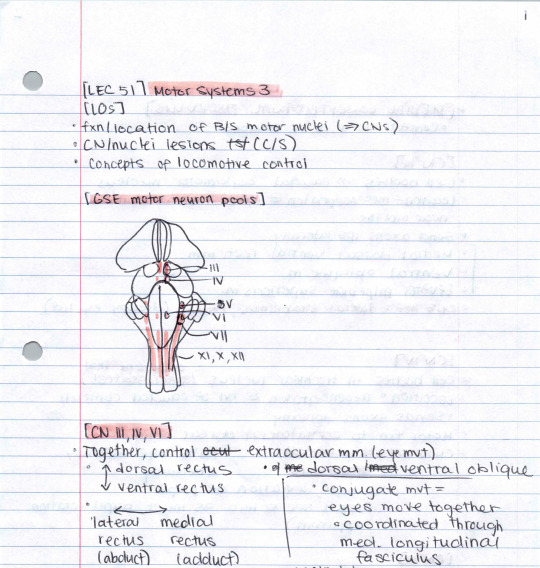 i
[LEC 51] Motor Systems 3
[LOs]
· fxn/location of B/S motor nuclei (⇒ CNs)
· CN/nuclei lesions tst (C/S)
· concepts of locomotive control
[GSE motor neuron pools]
III
IV
V
VI
VII
XI, X, XII
[CN III, IV, VI]
· Together, control ocul extraocular mm. (eye mvt)
· ↑ dorsal rectus
↓ ventral rectus
· ←→
lateral medial
rectus rectus
(abduct) (adduct)
· me dorsal/med ventral oblique
· conjugate mvt =
eyes move together
∘ coordinated through
med. longitudinal
fasciculus